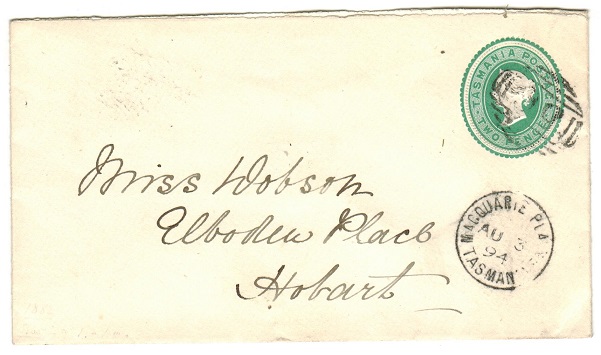 TASMANIA POSTAGE
TWO PENCE
Miss Dobson
Elboden Place
Hobart
MACQUARIE PLA
AU 3
94
TASMANIA